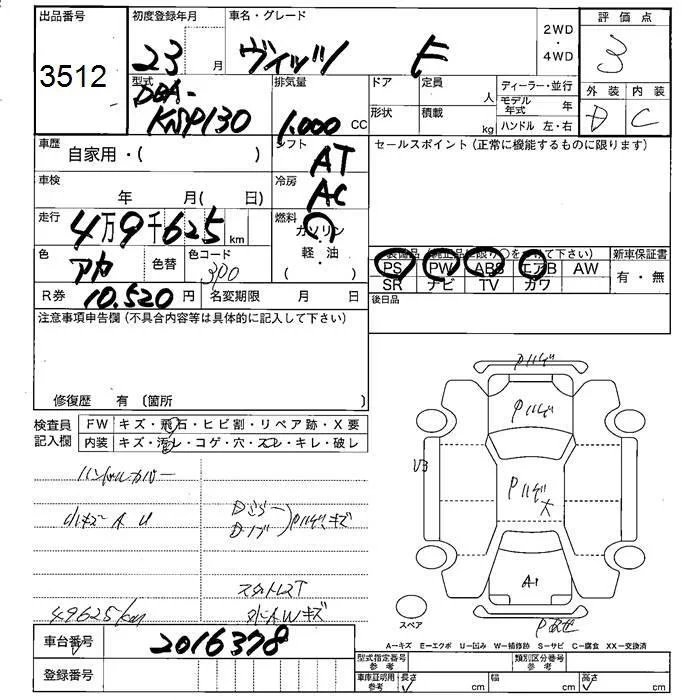 出品番号 初度登録年月 車名・グレード 評価点
3512 23 月 ヴィッツ F 2WD・4WD 3
型式 排気量 ドア 定員 人 ディーラー・並行 外装 内装
DBA-KSP130 1.000 CC 形状 積載 kg モデル年式 年 D C
ハンドル 左・右
車歴 自家用・( ) シフト AT セールスポイント(正常に機能するものに限ります)
車検 年 月( 日) 冷房 AC
走行 4万9千625km 燃料 ガソリン
軽・油
( )
色 アカ 色替 色コード 3P0
装備品(純正品に限り○をつけて下さい) 新車保証書
PS PW ABS エアB AW 有・無
SR ナビ TV カワ
R券 10.520円 名変期限 月 日 後日品
注意事項申告欄(不具合内容等は具体的に記入して下さい)
修復歴 有〔箇所 〕
検査員記入欄 FW キズ・飛石・ヒビ割・リペア跡・X要
内装 キズ・汚レ・コゲ・穴・スレ・キレ・破レ
ハンドルカバー
小キズ A U
Pハゲ キズ
49625/km
Pハゲ
Pハゲ
U3
Pハゲ大
A1
スペア
A−キズ E−エクボ U−凹み W−補修跡 S−サビ C−腐食 XX−交換済
車台番号 2016378
登録番号
型式指定番号 参考 類別区分番号 参考
車庫証明用・参考 長さ cm 幅 cm 高さ cm